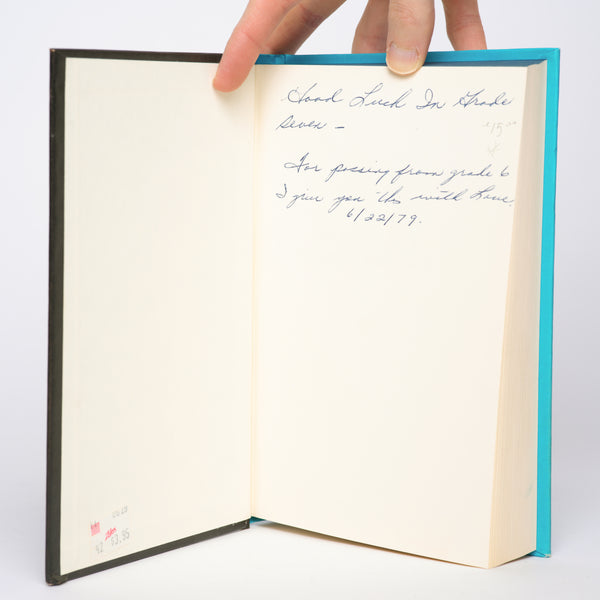 Good Luck In Grade
seven -
"15"
For passing from grade 6
I give you this with Love.
6/22/79.
92 $3.95